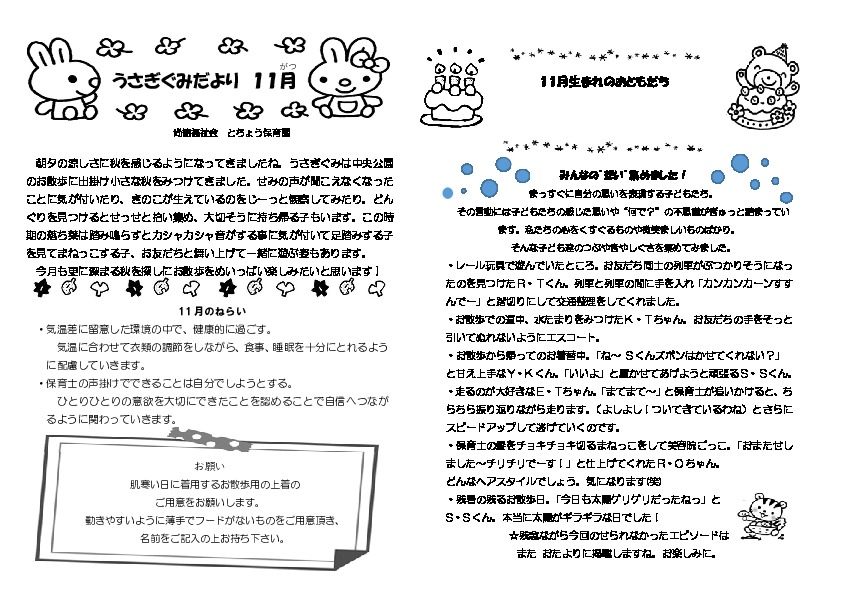 うさぎぐみだより 11月
がつ
尚徳福祉会 とちょう保育園
朝夕の涼しさに秋を感じるようになってきましたね。うさぎぐみは中央公園
のお散歩に出掛け小さな秋をみつけてきました。せみの声が聞こえなくなった
ことに気が付いたり、きのこが生えているのをじーっと観察してみたり。どん
ぐりを見つけるとせっせと拾い集め、大切そうに持ち帰る子もいます。この時
期の落ち葉は踏み鳴らすとカシャカシャ音がする事に気が付いて足踏みする子
を見てまねっこする子、お友だちと舞い上げて一緒に遊ぶ姿もあります。
今月も更に深まる秋を探しにお散歩をめいっぱい楽しみたいと思います！
11月のねらい
・気温差に留意した環境の中で、健康的に過ごす。
気温に合わせて衣類の調節をしながら、食事、睡眠を十分にとれるよう
に配慮していきます。
・保育士の声掛けでできることは自分でしようとする。
ひとりひとりの意欲を大切にできたことを認めることで自信へつなが
るように関わっていきます。
お願い
肌寒い日に着用するお散歩用の上着の
ご用意をお願いします。
動きやすいように薄手でフードがないものをご用意頂き、
名前をご記入の上お持ち下さい。
11月生まれのおともだち
みんなの“想い”集めました！
まっすぐに自分の思いを表現する子どもたち。
その言動には子どもたちの感じた思いや“何で？”の不思議がぎゅっと詰まってい
ます。私たちの心をくすぐるものや微笑ましいものばかり。
そんな子ども達のつぶやきやしぐさを集めてみました。
・レール玩具で遊んでいたところ。お友だち同士の列車がぶつかりそうになっ
たのを見つけたR・Tくん。列車と列車の間に手を入れ「カンカンカーンすす
んでー」と踏切りにして交通整理をしてくれました。
・お散歩での道中、水たまりをみつけたK・Tちゃん。お友だちの手をそっと
引いてぬれないようにエスコート。
・お散歩から帰ってのお着替中。「ね～ Sくんズボンはかせてくれない？」
と甘え上手なY・Kくん。「いいよ」と履かせてあげようと頑張るS・Sくん。
・走るのが大好きなE・Tちゃん。「まてまて～」と保育士が追いかけると、ち
らちら振り返りながら走ります。（よしよし！ついてきているわね）とさらに
スピードアップして逃げていくのです。
・保育士の髪をチョキチョキ切るまねっこをして美容院ごっこ。「おまたせし
ました～チリチリでーす！」と仕上げてくれたR・Oちゃん。
どんなヘアスタイルでしょう。気になります(笑)
・残暑の残るお散歩日。「今日も太陽ゲリゲリだったねっ」と
S・Sくん。本当に太陽がギラギラな日でした！
☆残念ながら今回のせられなかったエピソードは
また おたよりに掲載しますね。お楽しみに。